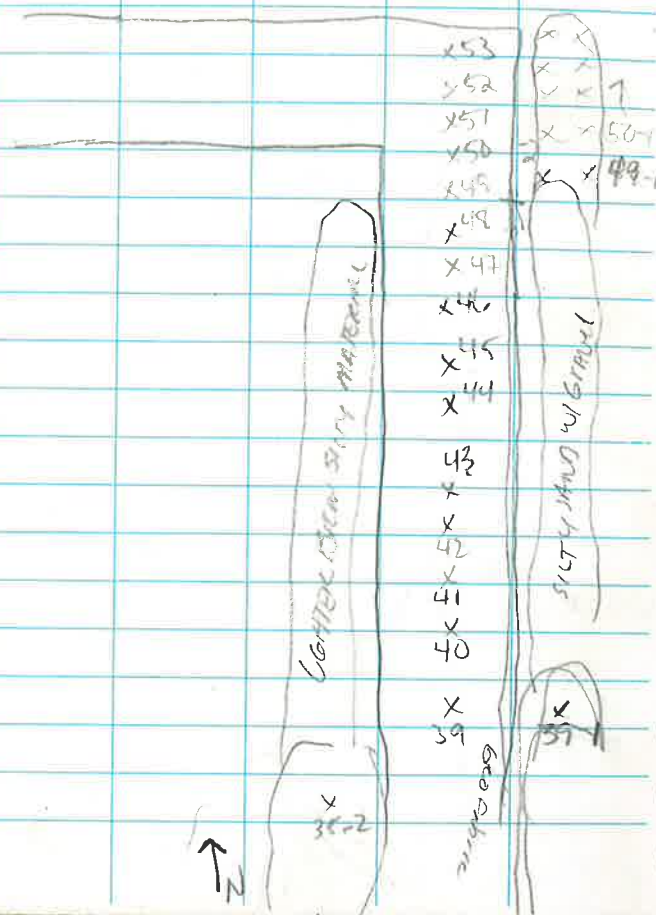 x53
x52
x51
x50
x49
x48
x47
x46
x45
x44
43
x
x
42
x
41
x
40
x
39
50-1
49-1
SILTY SAND W/GRAVEL
LIGHTER BROWN SILTY MATERIAL
x
39-1
x
N